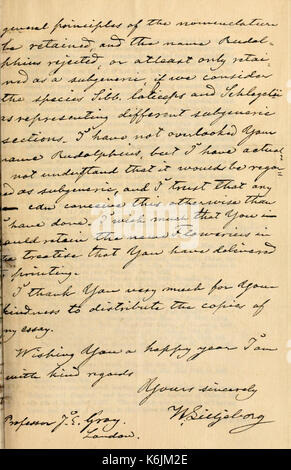 general principles of the nomenclature
be retained, and the name Rudol-
phius rejected, or at least only retai-
ned as a subgeneric, if we consider
the species Sibb. laticeps and Schlegelii
as representing different subgeneric
sections. I have not overlooked Your
name Rudolphius, but I have actual
not understand that it would be rega
d as subgeneric, and I trust that any
can conceive this otherwise than
I have done. I wish much that You
would retain the name Flowerius in
treatise that You have delivered
printing.
I thank You very much for Your
kindness to distribute the copies of
my essay.
Wishing You a happy year I am
with kind regards
Yours sincerely
W Lilljeborg
Professor J. E. Gray.
London.
alamy
Image ID: K6JM2E
www.alamy.com